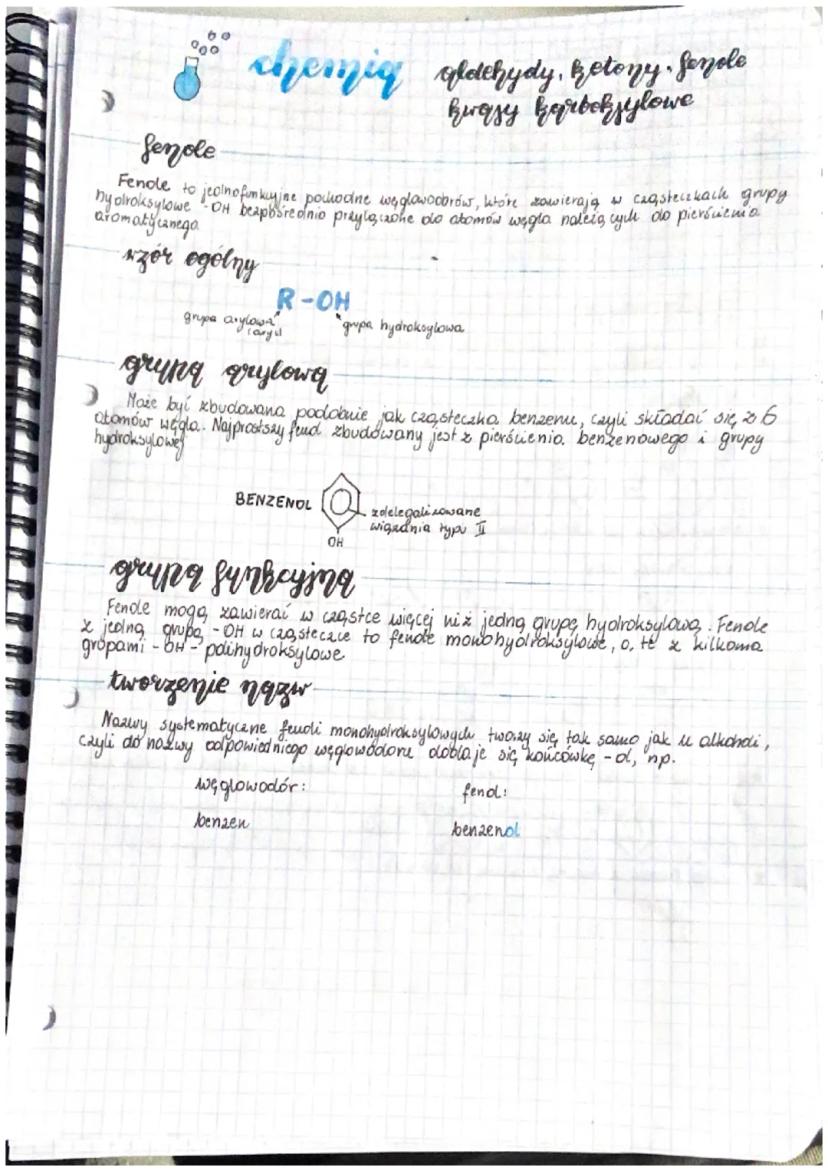 chemia aldehydy, ketony, fenole
kwasy karboksylowe
fenole
Fenole to jednofunkcyjne pochodne węglowodorów, które zawierają w cząsteczkach grupy
hydroksylowe -OH bezpośrednio przyłączone do atomów węgla należących do pierścienia
aromatycznego
wzór ogólny
R-OH
grupa arylowa
(aryl
grupa hydroksylowa
grupa arylowa
Może być zbudowana podobnie jak cząsteczka benzenu, czyli składać się z 6
atomów węgla. Najprostszy fenol zbudowany jest z pierścienia benzenowego i grupy
hydroksylowej
BENZENOL
zdelegalizowane
wiązania typu II
OH
grupa funkcyjna
Fenole mogą zawierać w cząstce więcej niż jedną grupę hydroksylową. Fenole
z jedną grupą -OH w cząsteczce to fenole monohydroksylowe, a te z kilkoma
grupami -OH - polihydroksylowe
tworzenie nazw
Nazwy systematyczne fenoli monohydroksylowych tworzy się tak samo jak u alkoholi,
czyli do nazwy odpowiedniego węglowodoru dodaje się końcówkę -ol, np.
węglowodór:
fenol:
benzen
benzenol